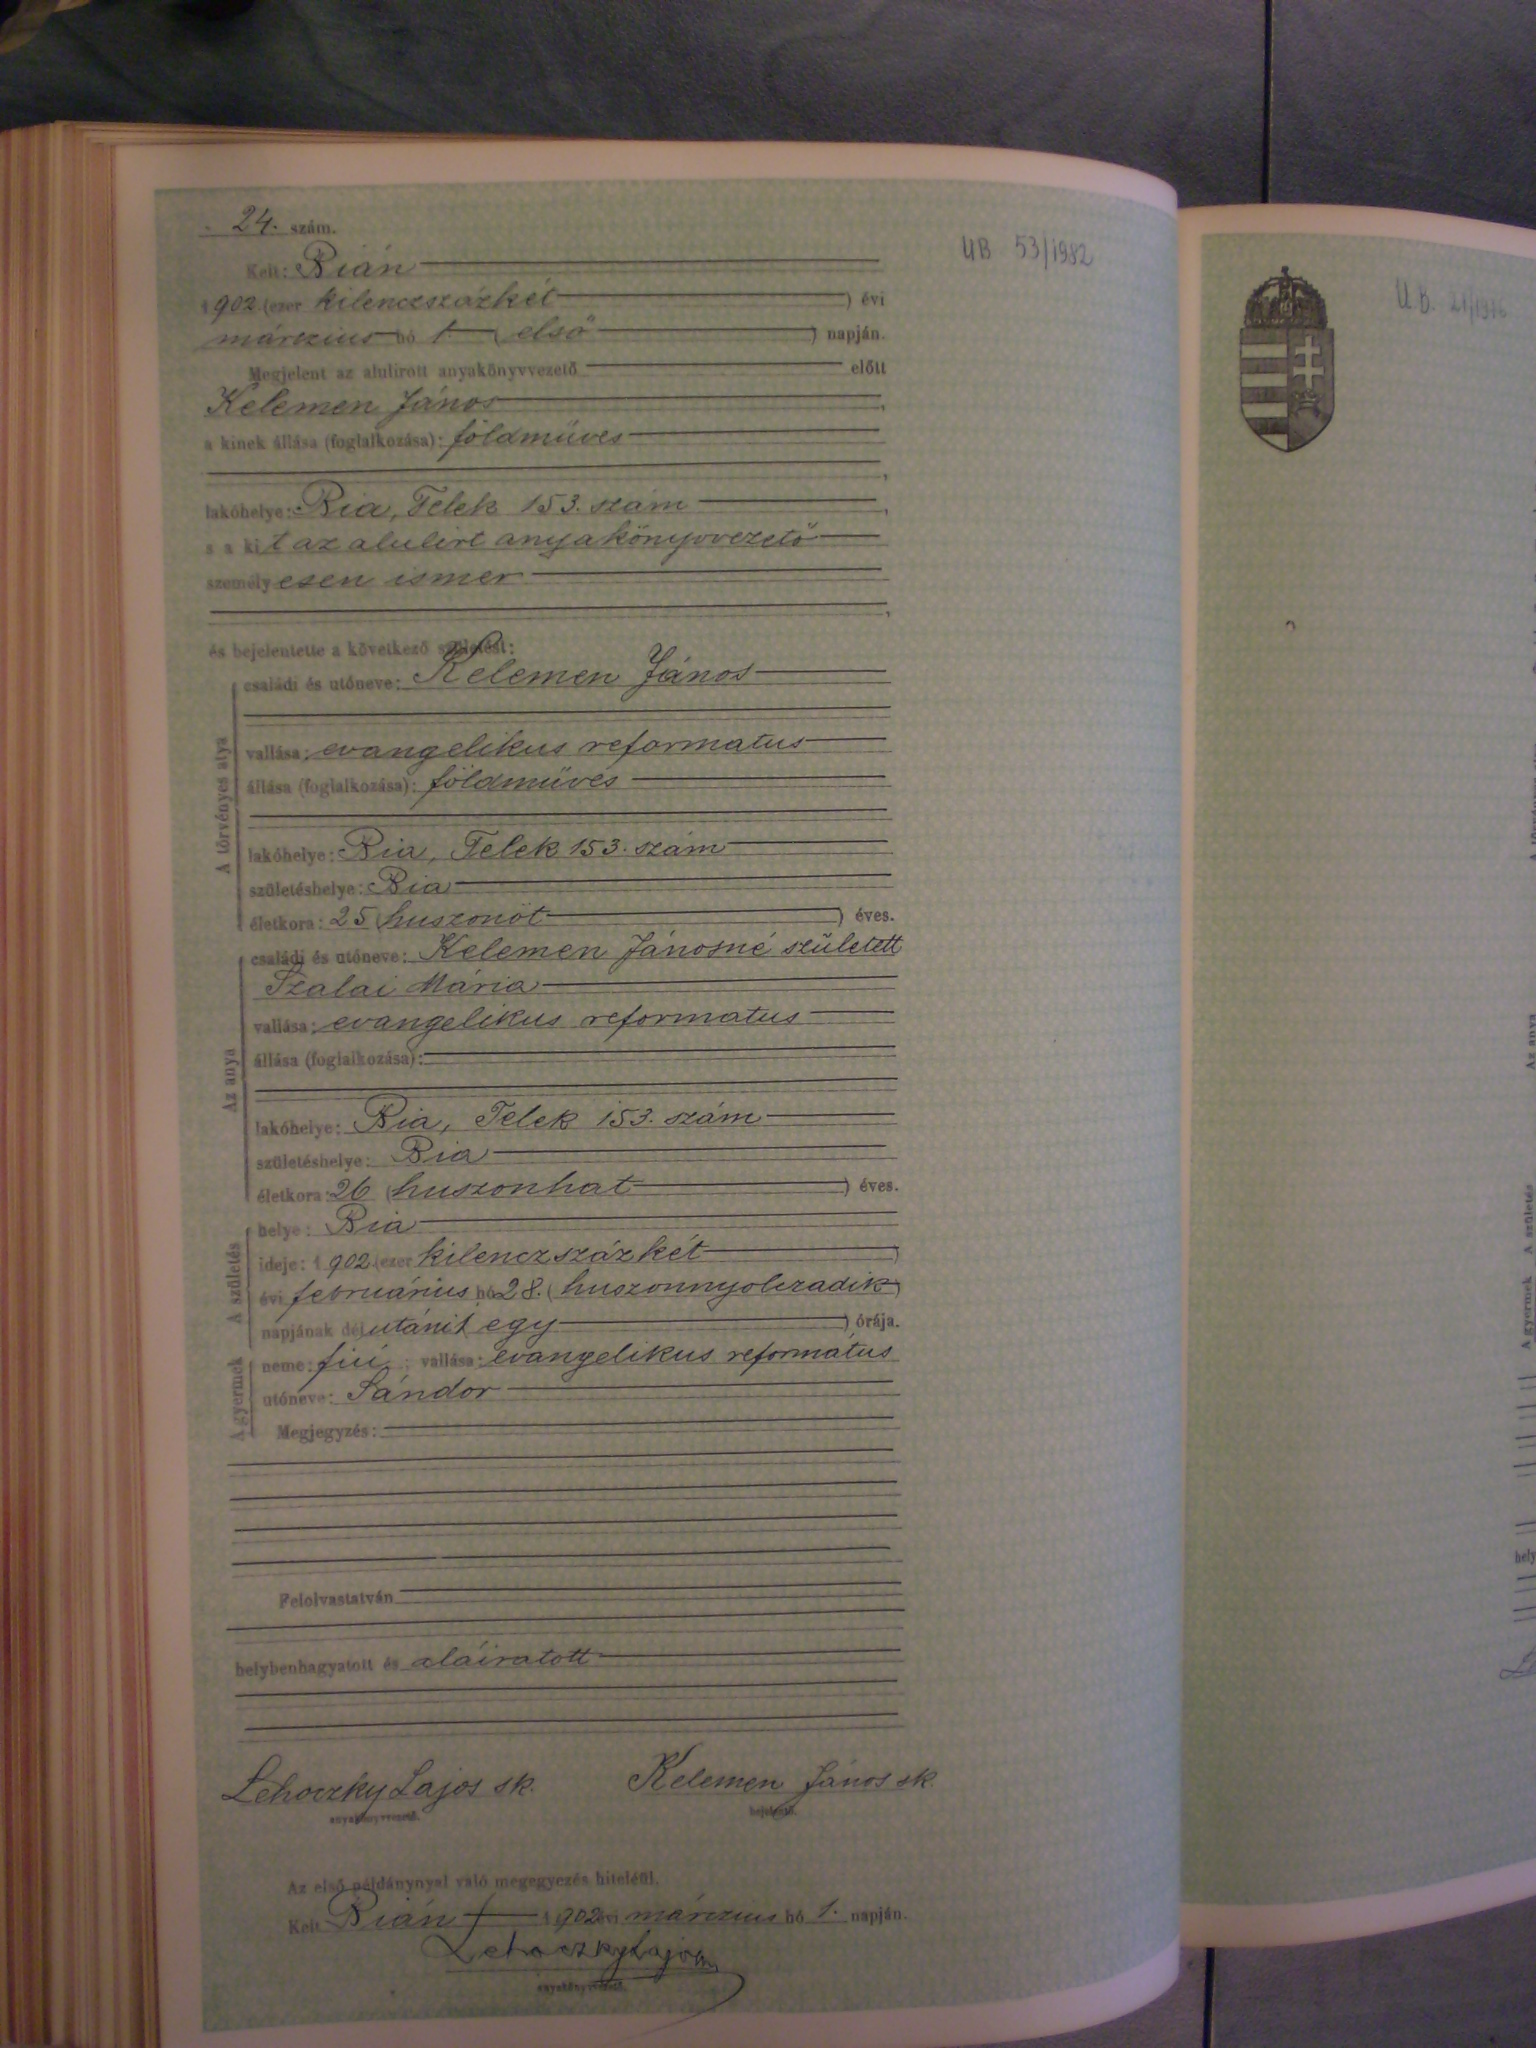 24. szám.
UB 53/1982
Kelt: Bián
1902 (ezer kilenczszázkét) évi
márczius hó 1. (első) napján.
Megjelent az alulírott anyakönyvvezető előtt
Kelemen János,
a kinek állása (foglalkozása): földmüves
lakóhelye: Bia, Telek 153. szám,
s a kit az alulirt anyakönyvvezető
személyesen ismer,
és bejelentette a következő születést:
A törvényes atya
családi és utóneve: Kelemen János
vallása: evangelikus reformatus
állása (foglalkozása): földmüves
lakóhelye: Bia, Telek 153. szám
születéshelye: Bia
életkora: 25 (huszonöt) éves.
Az anya
családi és utóneve: Kelemen Jánosné született
Szalai Mária
vallása: evangelikus reformatus
állása (foglalkozása):
lakóhelye: Bia, Telek 153. szám
születéshelye: Bia
életkora: 26 (huszonhat) éves.
A születés
helye: Bia
ideje: 1902 (ezer kilenczszázkét)
évi februáŕius hó 28. (huszonnyolczadik)
napjának délutáni egy órája.
A gyermek
neme: fiú; vallása: evangelikus református
utóneve: Sándor
Megjegyzés:
Felolvastatván
helybenhagyatott és aláiratott
Lehoczky Lajos sk. Kelemen János sk.
anyakönyvvezető. bejelentő.
Az első példánynyal való megegyezés hiteléül.
Kelt Bián 1902 évi márczius hó 1. napján.
Lehoczky Lajos
anyakönyvvezető.
U.B.
Az anya
A születés
A gyermek
hely